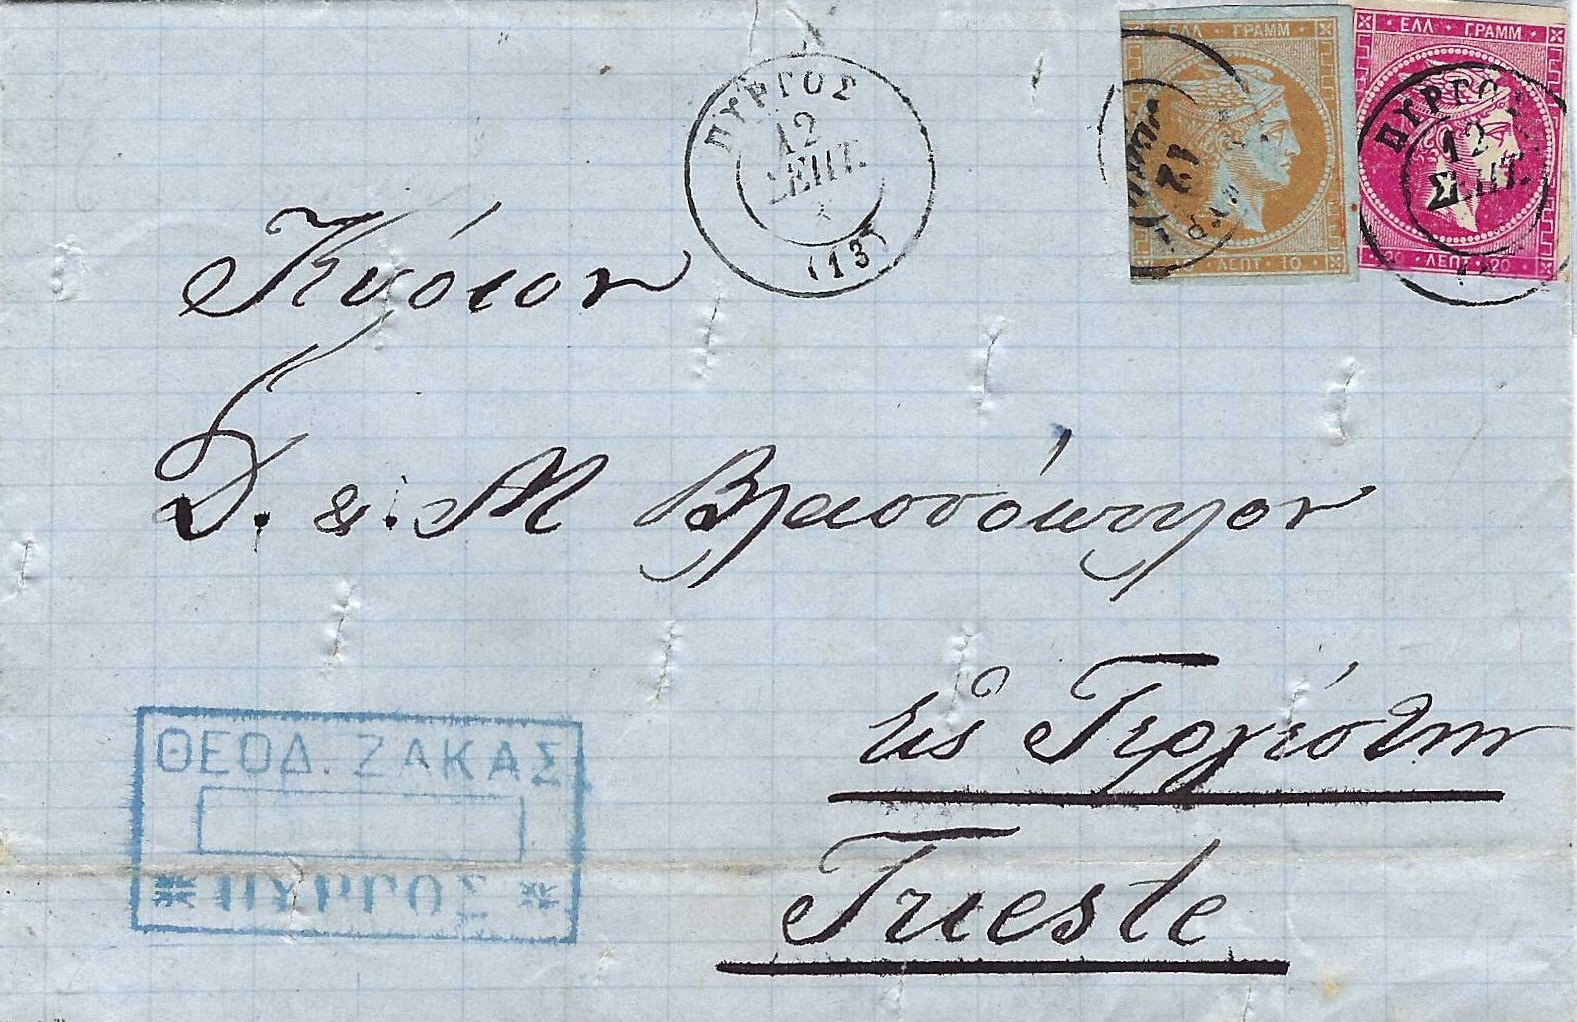 ΕΛΛ · ΓΡΑΜΜ
ΕΛΛ · ΓΡΑΜΜ
ΠΥΡΓΟΣ
12
ΣΕΠΤ.
(13)
ΠΥΡΓΟΣ
12
ΣΕΠΤ.
12
ΛΕΠΤ · 10
20 ΛΕΠΤ 20
Κύριον
Δ. & Μ Βλασσόπουλον
εις Τεργέστην
Trieste
ΘΕΟΔ. ΖΑΚΑΣ
ΠΥΡΓΟΣ